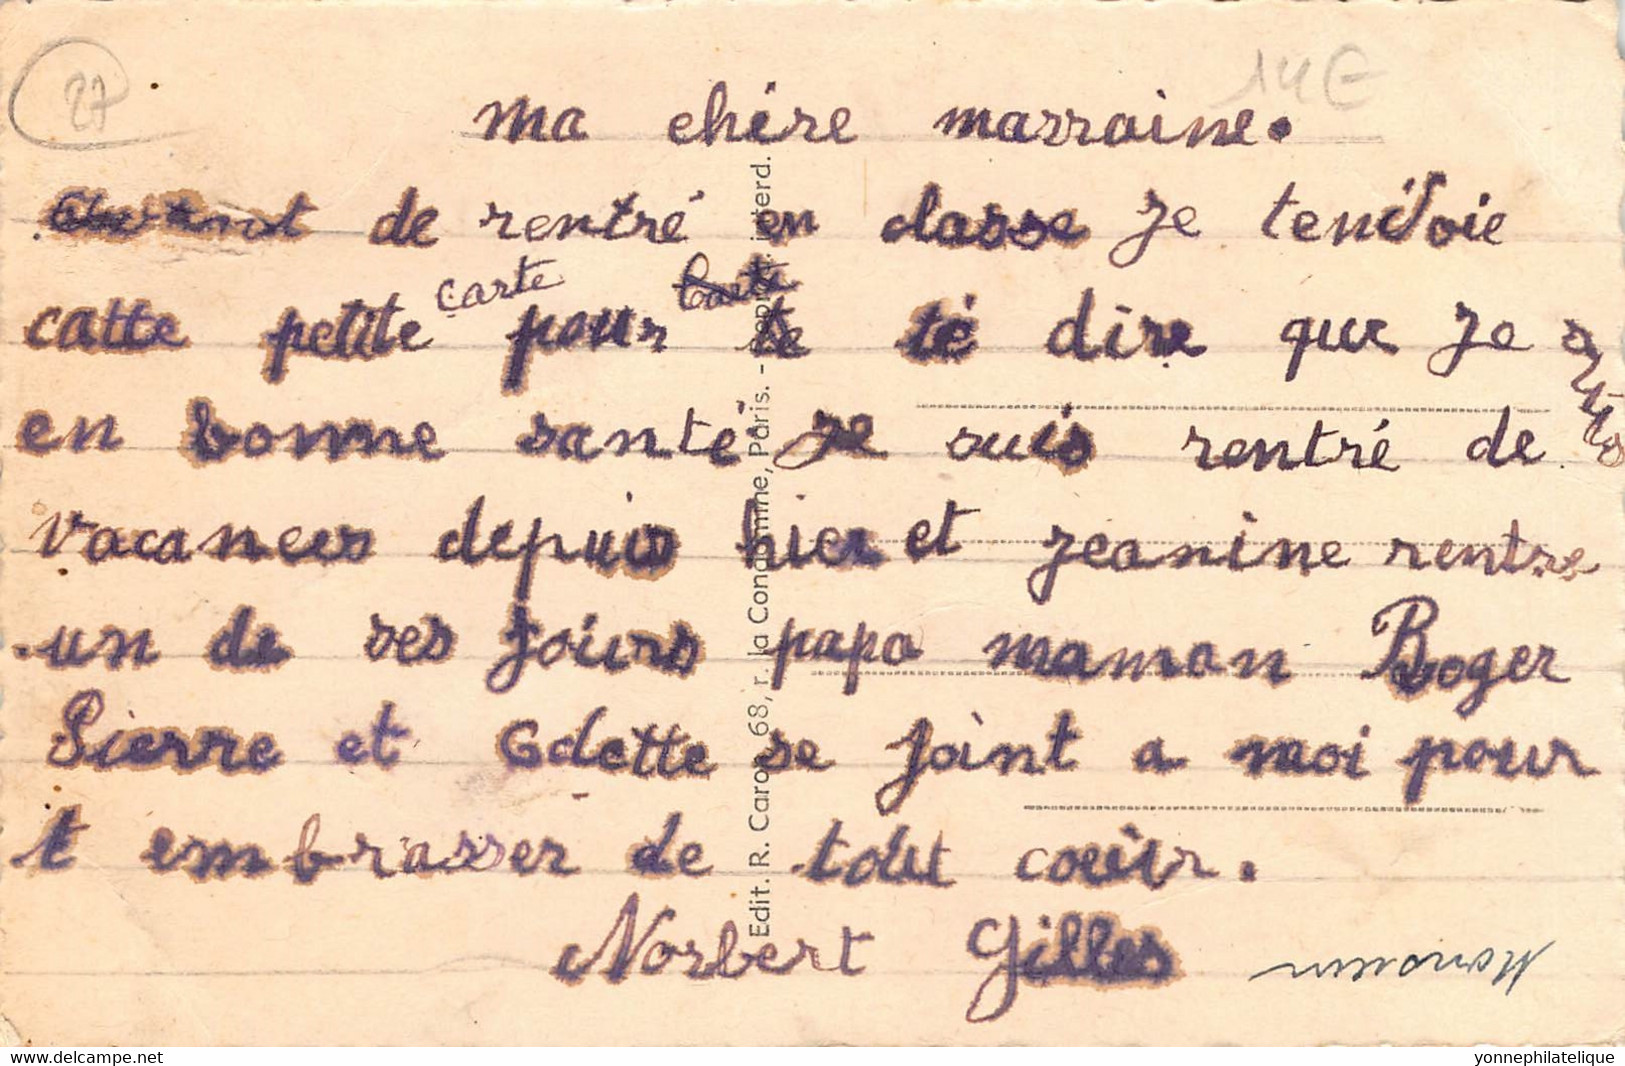 27
14€
ma chére marraine.
Avant de rentré en classe je tenvoie
catte petite carte pour te té dire que je suis
en bonne santé je suis rentré de
vacances depuis hier et jeanine rentre
un de ses jours papa maman Roger
Pierre et Odette se joint a moi pour
t embrasser de tout coeur.
Norbert Gilles
Edit. R. Caron, 68, r. la Condamine, Paris. - Repr. interd.
delcampe.net
yonnephilatelique